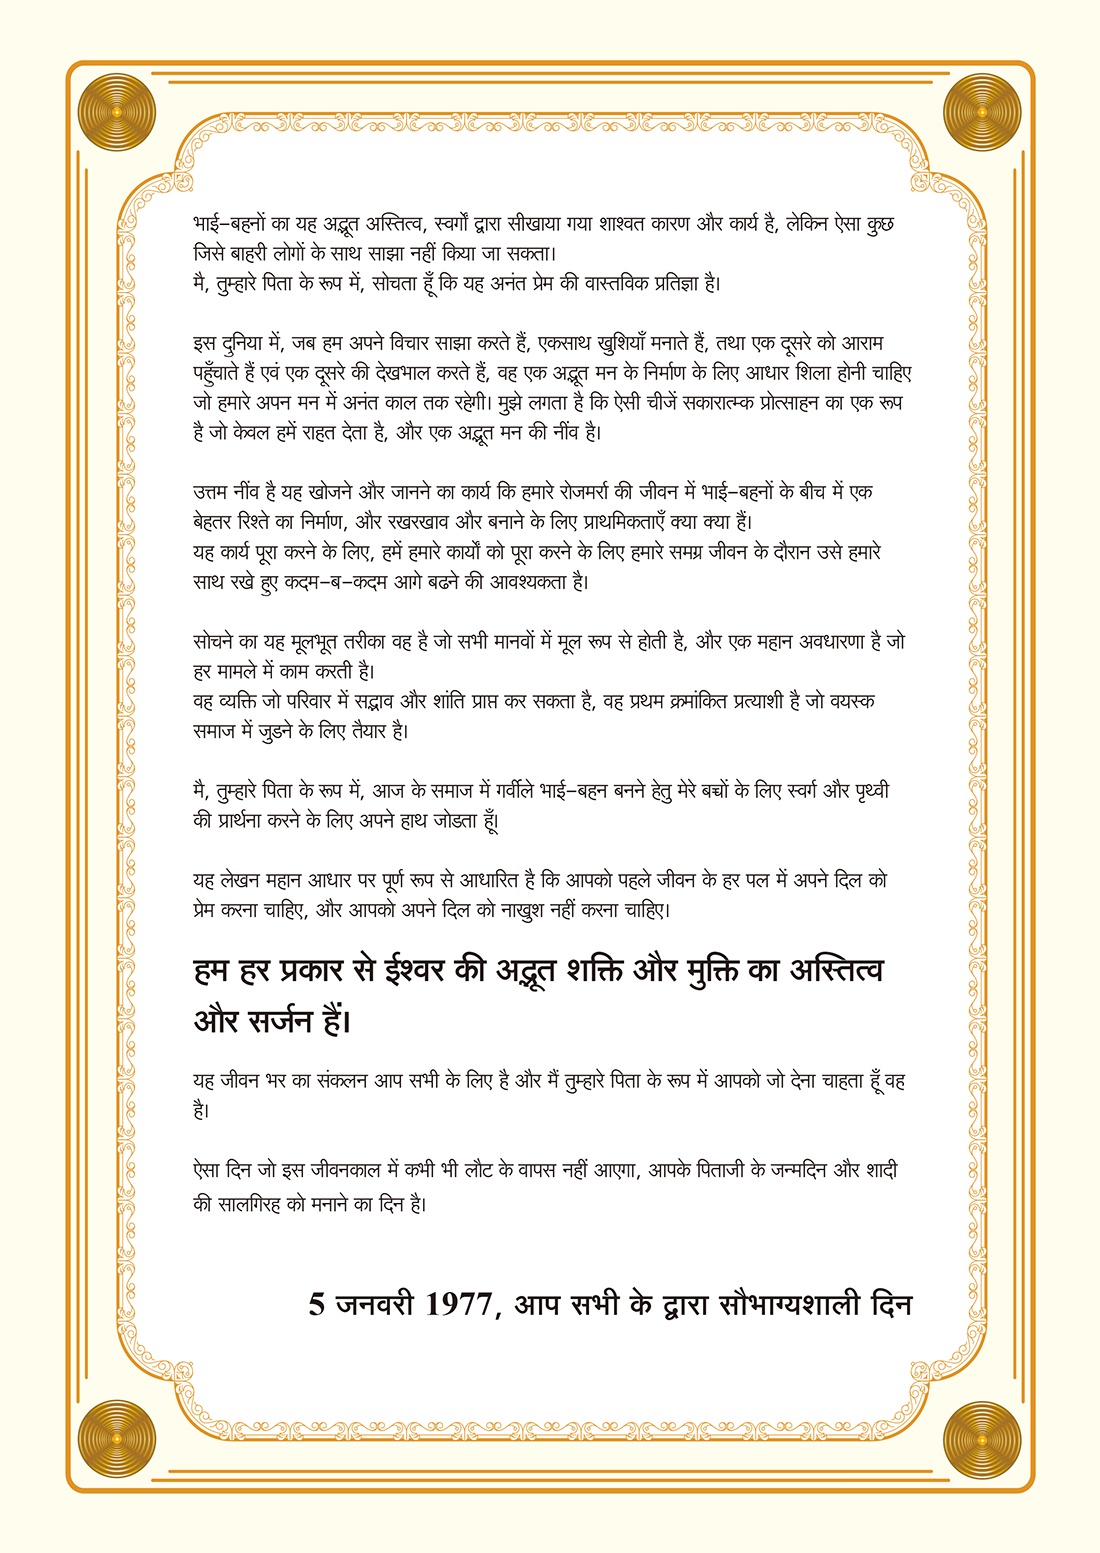 भाई–बहनों का यह अद्भूत अस्तित्व, स्वर्गों द्वारा सीखाया गया शाश्वत कारण और कार्य है, लेकिन ऐसा कुछ
जिसे बाहरी लोगों के साथ साझा नहीं किया जा सकता।
मै, तुम्हारे पिता के रूप में, सोचता हूँ कि यह अनंत प्रेम की वास्तविक प्रतिज्ञा है।
इस दुनिया में, जब हम अपने विचार साझा करते हैं, एकसाथ खुशियाँ मनाते हैं, तथा एक दूसरे को आराम
पहुँचाते हैं एवं एक दूसरे की देखभाल करते हैं, वह एक अद्भूत मन के निर्माण के लिए आधार शिला होनी चाहिए
जो हमारे अपन मन में अनंत काल तक रहेगी। मुझे लगता है कि ऐसी चीजें सकारात्म्क प्रोत्साहन का एक रूप
है जो केवल हमें राहत देता है, और एक अद्भूत मन की नींव है।
उत्तम नींव है यह खोजने और जानने का कार्य कि हमारे रोजमर्रा की जीवन में भाई–बहनों के बीच में एक
बेहतर रिश्ते का निर्माण, और रखरखाव और बनाने के लिए प्राथमिकताएँ क्या क्या हैं।
यह कार्य पूरा करने के लिए, हमें हमारे कार्यों को पूरा करने के लिए हमारे समग्र जीवन के दौरान उसे हमारे
साथ रखे हुए कदम–ब–कदम आगे बढने की आवश्यकता है।
सोचने का यह मूलभूत तरीका वह है जो सभी मानवों में मूल रूप से होती है, और एक महान अवधारणा है जो
हर मामले में काम करती है।
वह व्यक्ति जो परिवार में सद्भाव और शांति प्राप्त कर सकता है, वह प्रथम क्रमांकित प्रत्याशी है जो वयस्क
समाज में जुडने के लिए तैयार है।
मै, तुम्हारे पिता के रूप में, आज के समाज में गर्वीले भाई–बहन बनने हेतु मेरे बच्चों के लिए स्वर्ग और पृथ्वी
की प्रार्थना करने के लिए अपने हाथ जोडता हूँ।
यह लेखन महान आधार पर पूर्ण रूप से आधारित है कि आपको पहले जीवन के हर पल में अपने दिल को
प्रेम करना चाहिए, और आपको अपने दिल को नाखुश नहीं करना चाहिए।
हम हर प्रकार से ईश्वर की अद्भूत शक्ति और मुक्ति का अस्तित्व
और सर्जन हैं।
यह जीवन भर का संकलन आप सभी के लिए है और मैं तुम्हारे पिता के रूप में आपको जो देना चाहता हूँ वह
है।
ऐसा दिन जो इस जीवनकाल में कभी भी लौट के वापस नहीं आएगा, आपके पिताजी के जन्मदिन और शादी
की सालगिरह को मनाने का दिन है।
5 जनवरी 1977, आप सभी के द्वारा सौभाग्यशाली दिन